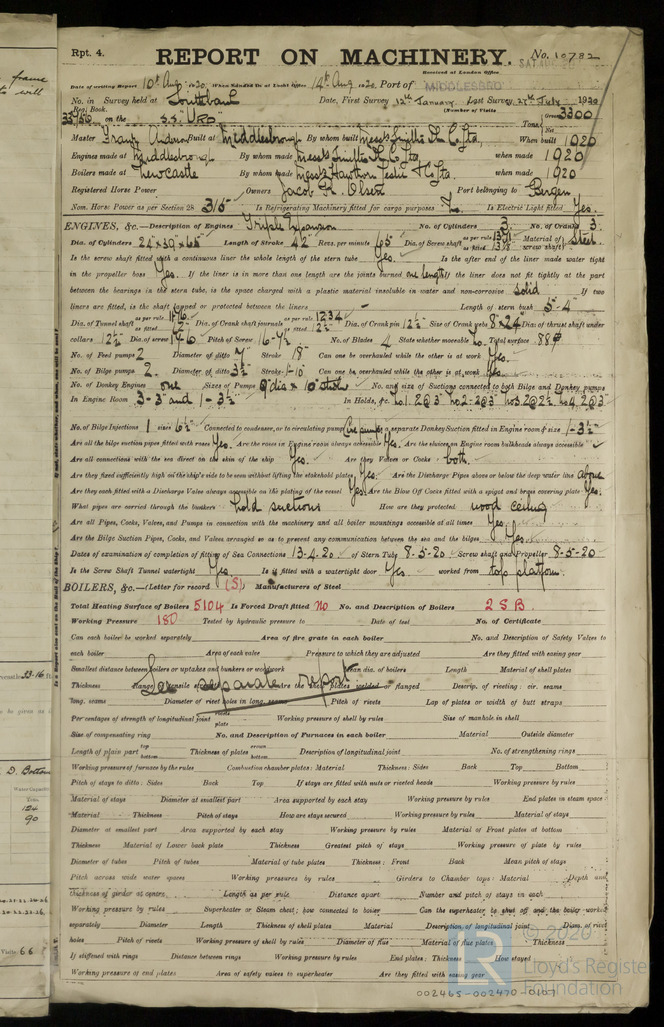 Rpt. 4.
REPORT ON MACHINERY.
No. 10782
Received at London Office
Date of writing Report 10th Aug 1920 When handed in at Local Office 14th Aug 1920 Port of MIDDLESBRO
No. in Survey held at Date, First Survey 12th January Last Survey July 1920
Reg. Book. (Number of Visits
on the S.S. "URD" Gross 3300
Tons Net
Master Built at Middlesbrough By whom built Messrs Smiths Co Ltd When built 1920
Engines made at Middlesbrough By whom made Messrs Smiths Co Ltd when made 1920
Boilers made at Newcastle By whom made Messrs Hawthorn Leslie & Co Ltd. when made 1920
Registered Horse Power Owners Jacob R. Olsen Port belonging to Bergen
Nom. Horse Power as per Section 28 315 Is Refrigerating Machinery fitted for cargo purposes No Is Electric Light fitted Yes.
ENGINES, &c.—Description of Engines Triple Expansion No. of Cylinders 3. No. of Cranks 3.
Dia. of Cylinders Length of Stroke 42 Revs. per minute 65 Dia. of Screw shaft as per rule as fitted Material of screw shaft Steel
Is the screw shaft fitted with a continuous liner the whole length of the stern tube Yes. Is the after end of the liner made water tight
in the propeller boss Yes. If the liner is in more than one length are the joints burned one length If the liner does not fit tightly at the part
between the bearings in the stern tube, is the space charged with a plastic material insoluble in water and non-corrosive solid If two
liners are fitted, is the shaft lapped or protected between the liners — Length of stern bush 5'-4"
Dia. of Tunnel shaft as per rule as fitted Dia. of Crank shaft journals as per rule 12.34 as fitted 12½" Dia. of Crank pin 12½" Size of Crank webs 8"x24" Dia. of thrust shaft under
collars 12½" Dia. of screw 17-6 Pitch of Screw 16-7½ No. of Blades 4 State whether moveable No Total surface 88
No. of Feed pumps 2 Diameter of ditto Stroke 18" Can one be overhauled while the other is at work Yes.
No. of Bilge pumps 2. Diameter of ditto 3½" Stroke Can one be overhauled while the other is at work Yes
No. of Donkey Engines one Sizes of Pumps 9" dia x 10" stroke No. and size of Suctions connected to both Bilge and Donkey pumps
In Engine Room 3-3" and 1-3½" In Holds, &c. No.1. 2@3" No 2-2@3" No3. 2@2½ No4, 2@3"
No. of Bilge Injections 1 sizes 6½" Connected to condenser, or to circulating pump Circ pump Is a separate Donkey Suction fitted in Engine room & size 1-3½"
Are all the bilge suction pipes fitted with roses Yes. Are the roses in Engine room always accessible Yes. Are the sluices on Engine room bulkheads always accessible "
Are all connections with the sea direct on the skin of the ship Yes. Are they Valves or Cocks both.
Are they fixed sufficiently high on the ship's side to be seen without lifting the stokehold plates Yes. Are the Discharge Pipes above or below the deep water line Above
Are they each fitted with a Discharge Valve always accessible on the plating of the vessel Yes. Are the Blow Off Cocks fitted with a spigot and brass covering plate Yes.
What pipes are carried through the bunkers hold suctions How are they protected wood ceiling
Are all Pipes, Cocks, Valves, and Pumps in connection with the machinery and all boiler mountings accessible at all times Yes.
Are the Bilge Suction Pipes, Cocks, and Valves arranged so as to prevent any communication between the sea and the bilges Yes.
Dates of examination of completion of fitting of Sea Connections 13-4-20 of Stern Tube 8-5-20 Screw shaft and Propeller 8-5-20
Is the Screw Shaft Tunnel watertight Yes. Is it fitted with a watertight door Yes. worked from top platform.
BOILERS, &c.—(Letter for record (S) Manufacturers of Steel
Total Heating Surface of Boilers 5104 Is Forced Draft fitted No No. and Description of Boilers 2 S B.
Working Pressure 180 Tested by hydraulic pressure to Date of test No. of Certificate
Can each boiler be worked separately Area of fire grate in each boiler No. and Description of Safety Valves to
each boiler Area of each valve Pressure to which they are adjusted Are they fitted with easing gear
Smallest distance between boilers or uptakes and bunkers or woodwork Mean dia. of boilers Length Material of shell plates
Thickness Range of tensile strength Are the shell plates welded or flanged Descrip. of riveting: cir. seams
See separate report
long. seams Diameter of rivet holes in long. seams Pitch of rivets Lap of plates or width of butt straps
Per centages of strength of longitudinal joint rivets plate Working pressure of shell by rules Size of manhole in shell
Size of compensating ring No. and Description of Furnaces in each boiler Material Outside diameter
Length of plain part top bottom Thickness of plates crown bottom Description of longitudinal joint No. of strengthening rings
Working pressure of furnace by the rules Combustion chamber plates: Material Thickness: Sides Back Top Bottom
Pitch of stays to ditto: Sides Back Top If stays are fitted with nuts or riveted heads Working pressure by rules
Material of stays Diameter at smallest part Area supported by each stay Working pressure by rules End plates in steam space:
Material Thickness Pitch of stays How are stays secured Working pressure by rules Material of stays
Diameter at smallest part Area supported by each stay Working pressure by rules Material of Front plates at bottom
Thickness Material of Lower back plate Thickness Greatest pitch of stays Working pressure of plate by rules
Diameter of tubes Pitch of tubes Material of tube plates Thickness: Front Back Mean pitch of stays
Pitch across wide water spaces Working pressures by rules Girders to Chamber tops: Material Depth and
thickness of girder at centre Length as per rule Distance apart Number and pitch of stays in each
Working pressure by rules Superheater or Steam chest; how connected to boiler Can the superheater be shut off and the boiler worked
separately Diameter Length Thickness of shell plates Material Description of longitudinal joint Diam. of rivet
holes Pitch of rivets Working pressure of shell by rules Diameter of flue Material of flue plates Thickness
If stiffened with rings Distance between rings Working pressure by rules End plates: Thickness How stayed
Working pressure of end plates Area of safety valves to superheater Are they fitted with easing gear
© 2020
Lloyd's Registe
Foundation
002465-002470-0107
frame
to will
33-16
D. Bottom
Water Capacity
Tons.
124
90
Visits 66